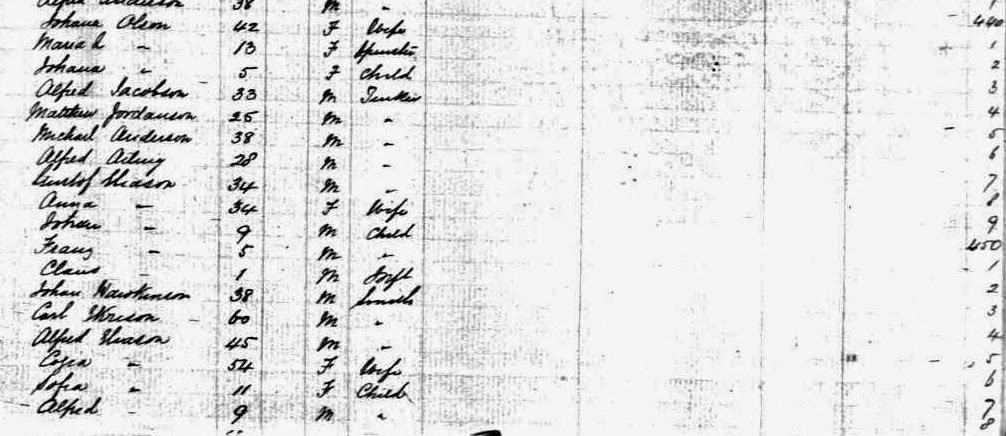 Anderson 38 M "
Johana Olson 42 F Wife 440
Maria L " 13 F Spinster 1
Johana " 5 F Child 2
Alfred Jacobson 33 M 3
Matthew Jordanson 25 M " 4
Michael Anderson 38 M " 5
Alfred 28 M " 6
Gustof Eliason 34 M " 7
Anna " 34 F Wife 8
Johan " 9 M Child 9
Franz " 5 M " 450
Claus " 1 M Inft 1
Johan Hawkinson 38 M Smith 2
Carl 60 M " 3
Alfred Eliason 45 M " 4
" 54 F Wife 5
Sofia " 11 F Child 6
Alfred " 9 M " 7
8